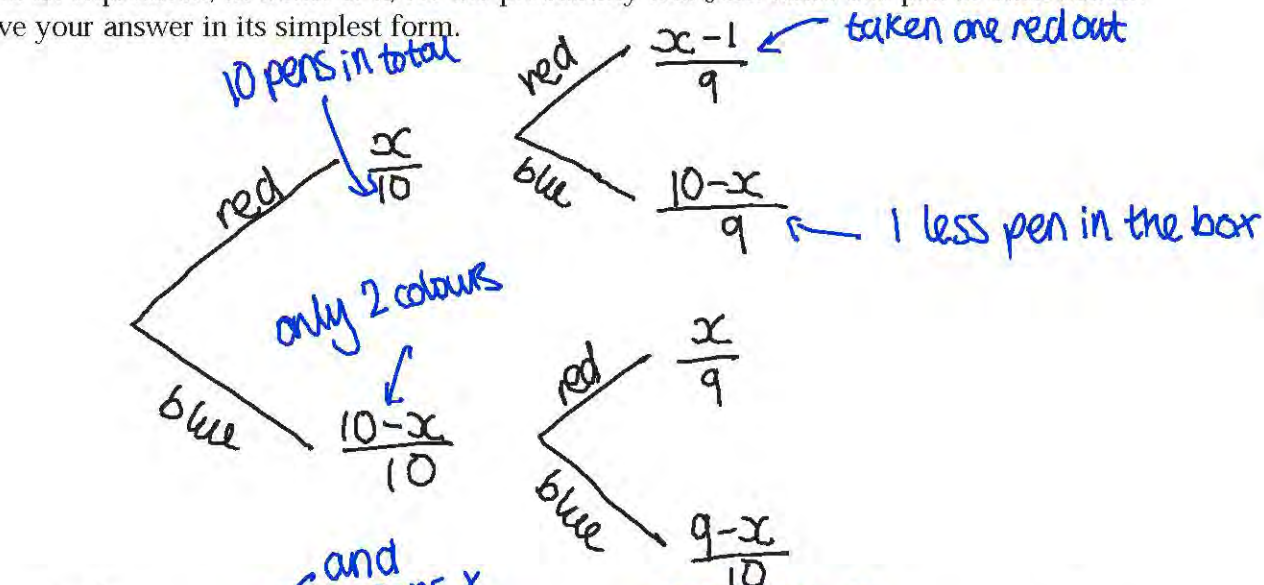 ve your answer in its simplest form.
10 pens in total
red
x-1
9
taken one red out
x
10
red
blue
10-x
9
1 less pen in the box
only 2 colours
red
x
9
blue
10-x
10
blue
9-x
10
and